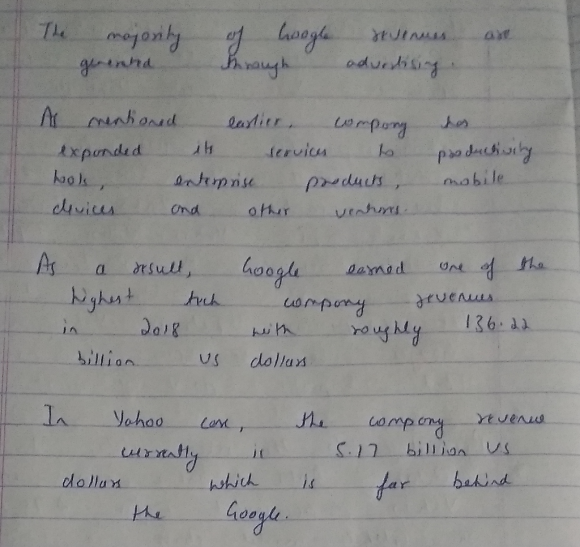 The majority of Google revenues are
generated through advertising.
As mentioned earlier, company has
expanded its services to productivity
tools, enterprise products, mobile
devices and other ventures.
As a result, Google earned one of the
highest tech company revenues
in 2018 with roughly 136.22
billion US dollars
In Yahoo case, the company revenue
currently is 5.17 billion US
dollars which is far behind
the Google.